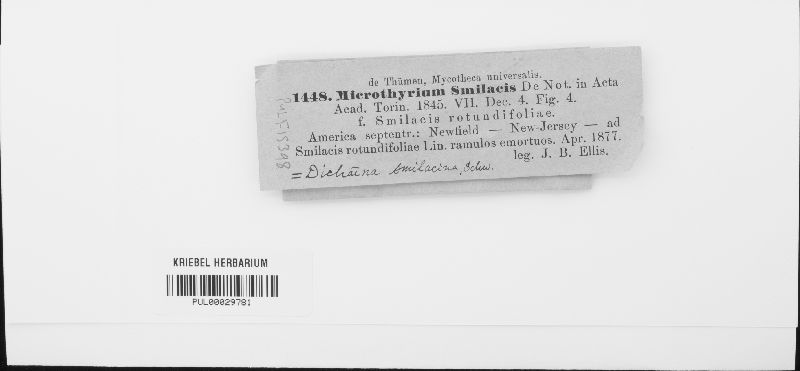 de Thümen, Mycotheca universalis.
1448. Microthyrium Smilacis De Not. in Acta
Acad. Torin. 1845. VII. Dec. 4. Fig. 4.
f. Smilacis rotundifoliae.
America septentr.: Newfield — New-Jersey — ad
Smilacis rotundifoliae Lin. ramulos emortuos. Apr. 1877.
leg. J. B. Ellis.
= Dichaena smilacina, Schw.
PUL F15398
KRIEBEL HERBARIUM
PUL00029781